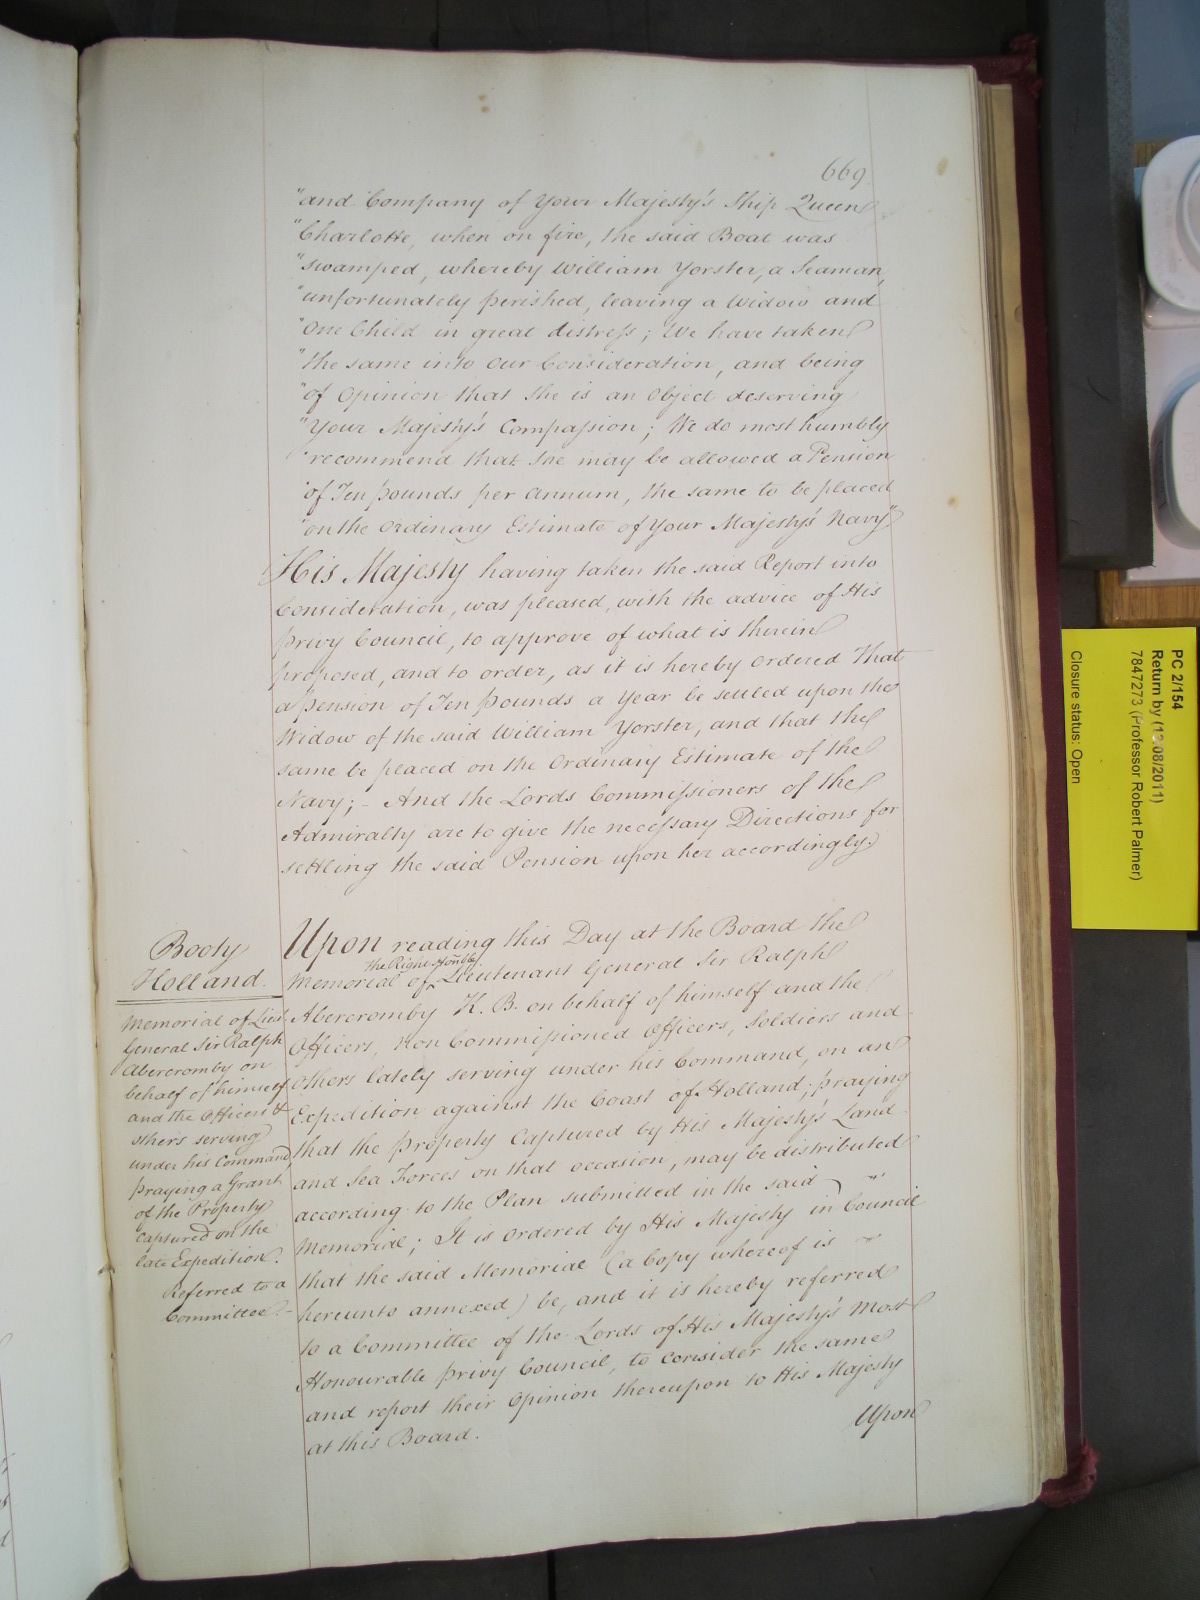 669.
"and Company of Your Majesty's Ship Queen
"Charlotte, when on fire, the said Boat was
"swamped, whereby William Yorster, a Seaman,
"unfortunately perished, leaving a Widow and
"One Child in great distress; We have taken
"the same into Our Consideration, and being
"of Opinion that She is an Object deserving
"Your Majesty's Compassion; We do most humbly
"recommend that She may be allowed a Pension
"of Ten pounds per Annum, the same to be placed
"on the Ordinary Estimate of Your Majesty's Navy"
His Majesty having taken the said Report into
Consideration, was pleased, with the advice of His
Privy Council, to approve of what is therein
proposed, and to order, as it is hereby Ordered That
a Pension of Ten Pounds a Year be settled upon the
Widow of the said William Yorster, and that the
same be placed on the Ordinary Estimate of the
Navy;- And the Lords Commissioners of the
Admiralty are to give the necessary Directions for
settling the said Pension upon her accordingly.
Booty
Holland.
Memorial of Lieut
General Sir Ralph
Abercromby on
behalf of himself
and the Officers &
others serving
under his Command,
praying a Grant
of the Property
captured on the
late Expedition.
Referred to a
Committee.-
Upon reading this Day at the Board the
the Right Honble.
Memorial of Lieutenant General Sir Ralph
Abercromby K. B. on behalf of himself and the
Officers, Non Commissioned Officers, Soldiers and
others lately serving under his Command, on an
Expedition against the Coast of Holland; praying
that the Property Captured by His Majesty's Land
and Sea Forces on that occasion, may be distributed
according to the Plan submitted in the said
Memorial; It is ordered by His Majesty in Council
that the said Memorial (a Copy whereof is
hereunto annexed) be, and it is hereby referred
to a Committee of the Lords of His Majesty's Most
Honourable Privy Council, to consider the same
and report their Opinion thereupon to His Majesty
at this Board.
Upon
PC 2/154
Return by (13/08/2011)
7847273 (Professor Robert Palmer)
Closure status: Open